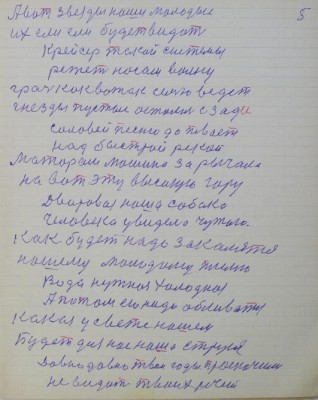 5
Явот звезды наши молодые
их ели ели будет видать
Крейсер такой системы
режет носам волну
грач как вожак силю ведет
гнезды пустые остались с зади
соловей песню до певает
над быстрой рекой
Маторам машина за рычала
на вот эту высокую гору
Дворовая наша собака
человека увидела чужого.
Как будет надо закалятся
нашему молодому
Вода нужная холодная
Апотом ею надо обливатся
Какая у свете нашем
Будет для нас наша
Давно давно твои годы проскочили
не видат твоих речий